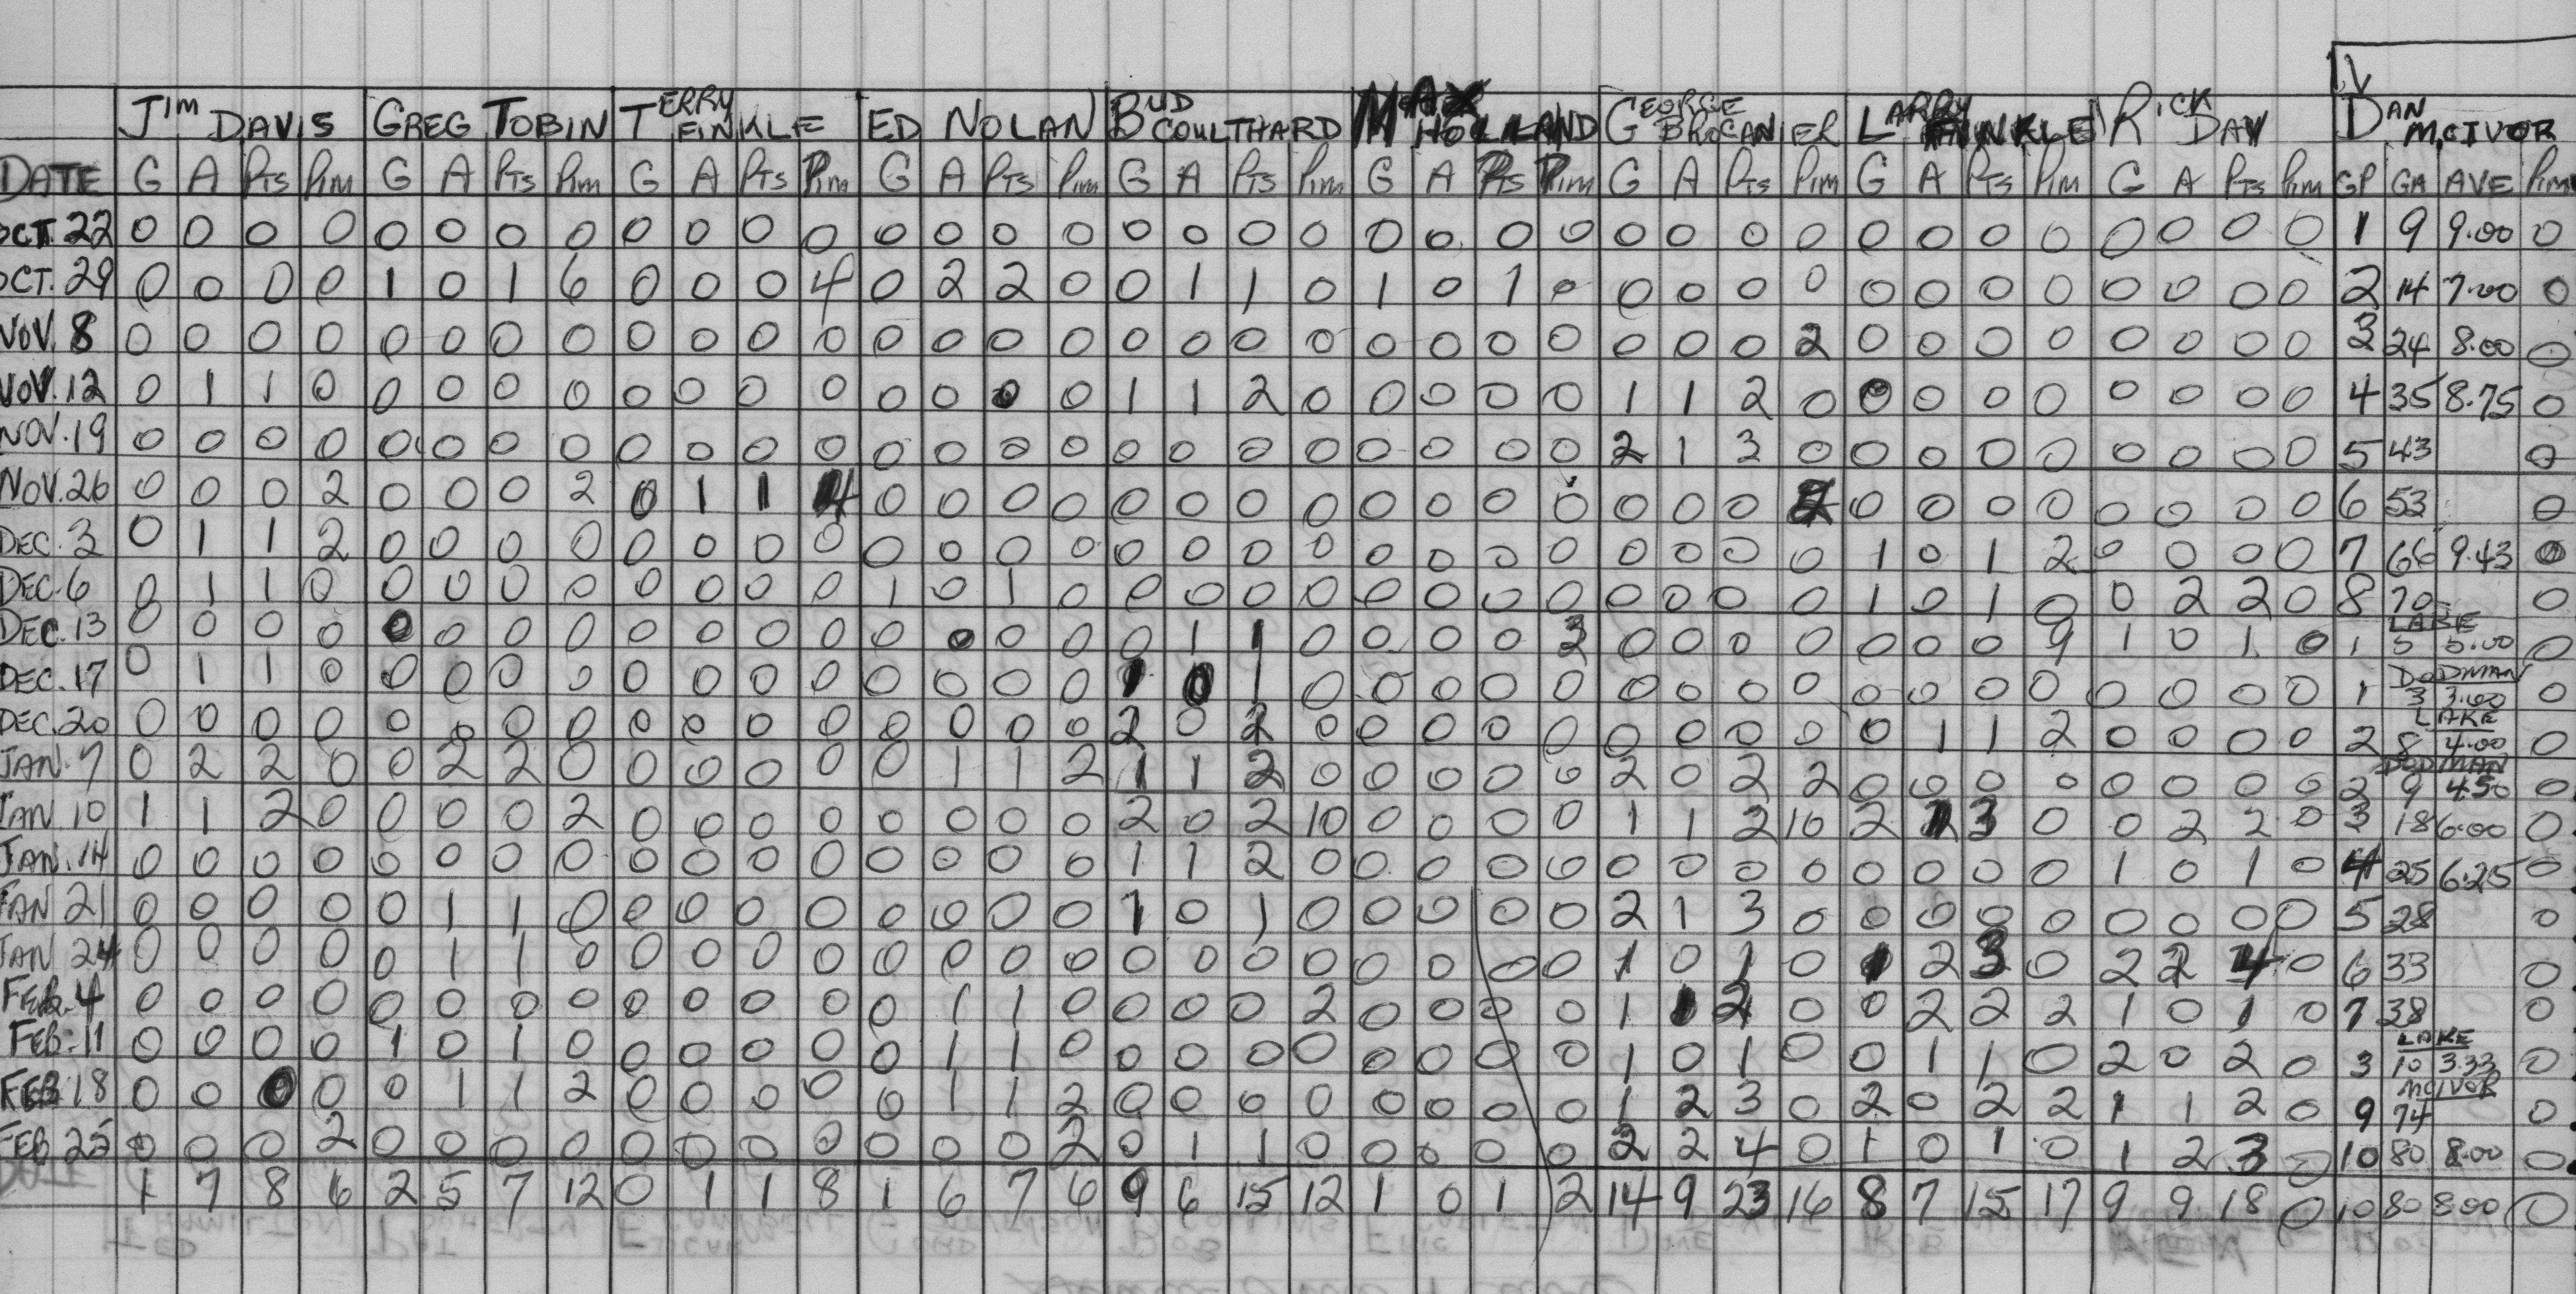 JIM DAVIS GREG TOBIN TERRY FINKLE ED NOLAN BUD COULTHARD MAX HOLLAND GEORGE BROCANIER LARRY FINKLE RICK DAY DAN MCIVOR
DATE G A PTS PIM G A PTS PIM G A PTS PIM G A PTS PIM G A PTS PIM G A PTS PIM G A PTS PIM G A PTS PIM G A PTS PIM GP GA AVE PIM
OCT. 22 0 0 0 0 0 0 0 0 0 0 0 0 0 0 0 0 0 0 0 0 0 0 0 0 0 0 0 0 0 0 0 0 0 0 0 0 1 9 9.00 0
OCT. 29 0 0 0 0 1 0 1 6 0 0 0 4 0 2 2 0 0 1 1 0 1 0 1 0 0 0 0 0 0 0 0 0 0 0 0 0 2 14 7.00 0
NOV. 8 0 0 0 0 0 0 0 0 0 0 0 0 0 0 0 0 0 0 0 0 0 0 0 0 0 0 0 2 0 0 0 0 0 0 0 0 3 24 8.00 0
NOV. 12 0 1 1 0 0 0 0 0 0 0 0 0 0 0 0 0 1 1 2 0 0 0 0 0 1 1 2 0 0 0 0 0 0 0 0 0 4 35 8.75 0
NOV. 19 0 0 0 0 0 0 0 0 0 0 0 0 0 0 0 0 0 0 0 0 0 0 0 0 2 1 3 0 0 0 0 0 0 0 0 0 5 43 0
NOV. 26 0 0 0 2 0 0 0 2 0 1 1 4 0 0 0 0 0 0 0 0 0 0 0 0 0 0 0 2 0 0 0 0 0 0 0 0 6 53 0
DEC. 3 0 1 1 2 0 0 0 0 0 0 0 0 0 0 0 0 0 0 0 0 0 0 0 0 0 0 0 0 1 0 1 2 0 0 0 0 7 66 9.43 0
DEC. 6 0 1 1 0 0 0 0 0 0 0 0 0 1 0 1 0 0 0 0 0 0 0 0 0 0 0 0 0 1 0 1 0 0 2 2 0 8 70 0
LAKE
DEC. 13 0 0 0 0 0 0 0 0 0 0 0 0 0 0 0 0 0 1 1 0 0 0 0 2 0 0 0 0 0 0 0 9 1 0 1 0 1 5 5.00 0
DODMAN
DEC. 17 0 1 1 0 0 0 0 0 0 0 0 0 0 0 0 0 1 0 1 0 0 0 0 0 0 0 0 0 0 0 0 0 0 0 0 0 1 3 3.00 0
LAKE
DEC. 20 0 0 0 0 0 0 0 0 0 0 0 0 0 0 0 0 2 0 2 0 0 0 0 0 0 0 0 0 0 1 1 2 0 0 0 0 2 8 4.00 0
DODMAN
JAN. 7 0 2 2 0 0 2 2 0 0 0 0 0 0 1 1 2 1 1 2 0 0 0 0 0 2 0 2 2 0 0 0 0 0 0 0 0 2 9 4.50 0
JAN. 10 1 1 2 0 0 0 0 2 0 0 0 0 0 0 0 0 2 0 2 10 0 0 0 0 1 1 2 10 2 1 3 0 0 2 2 0 3 18 6.00 0
JAN. 14 0 0 0 0 0 0 0 0 0 0 0 0 0 0 0 0 1 1 2 0 0 0 0 0 0 0 0 0 0 0 0 0 1 0 1 0 4 25 6.25 0
JAN 21 0 0 0 0 0 1 1 0 0 0 0 0 0 0 0 0 1 0 1 0 0 0 0 0 2 1 3 0 0 0 0 0 0 0 0 0 5 28 0
JAN 24 0 0 0 0 0 1 1 0 0 0 0 0 0 0 0 0 0 0 0 0 0 0 0 0 1 0 1 0 1 2 3 0 2 2 4 0 6 33 0
FEB. 4 0 0 0 0 0 0 0 0 0 0 0 0 0 1 1 0 0 0 0 2 0 0 0 0 1 1 2 0 0 2 2 2 1 0 1 0 7 38 0
LAKE
FEB. 11 0 0 0 0 1 0 1 0 0 0 0 0 0 1 1 0 0 0 0 0 0 0 0 0 1 0 1 0 0 1 1 0 2 0 2 0 3 10 3.33 0
MCIVOR
FEB 18 0 0 0 0 0 1 1 2 0 0 0 0 0 1 1 2 0 0 0 0 0 0 0 0 1 2 3 0 2 0 2 2 1 1 2 0 9 74 0
FEB 25 0 0 0 2 0 0 0 0 0 0 0 0 0 0 0 2 0 1 1 0 0 0 0 0 2 2 4 0 1 0 1 0 1 2 3 0 10 80 8.00 0
1 7 8 6 2 5 7 12 0 1 1 8 1 6 7 6 9 6 15 12 1 0 1 2 14 9 23 16 8 7 15 17 9 9 18 0 10 80 8.00 0